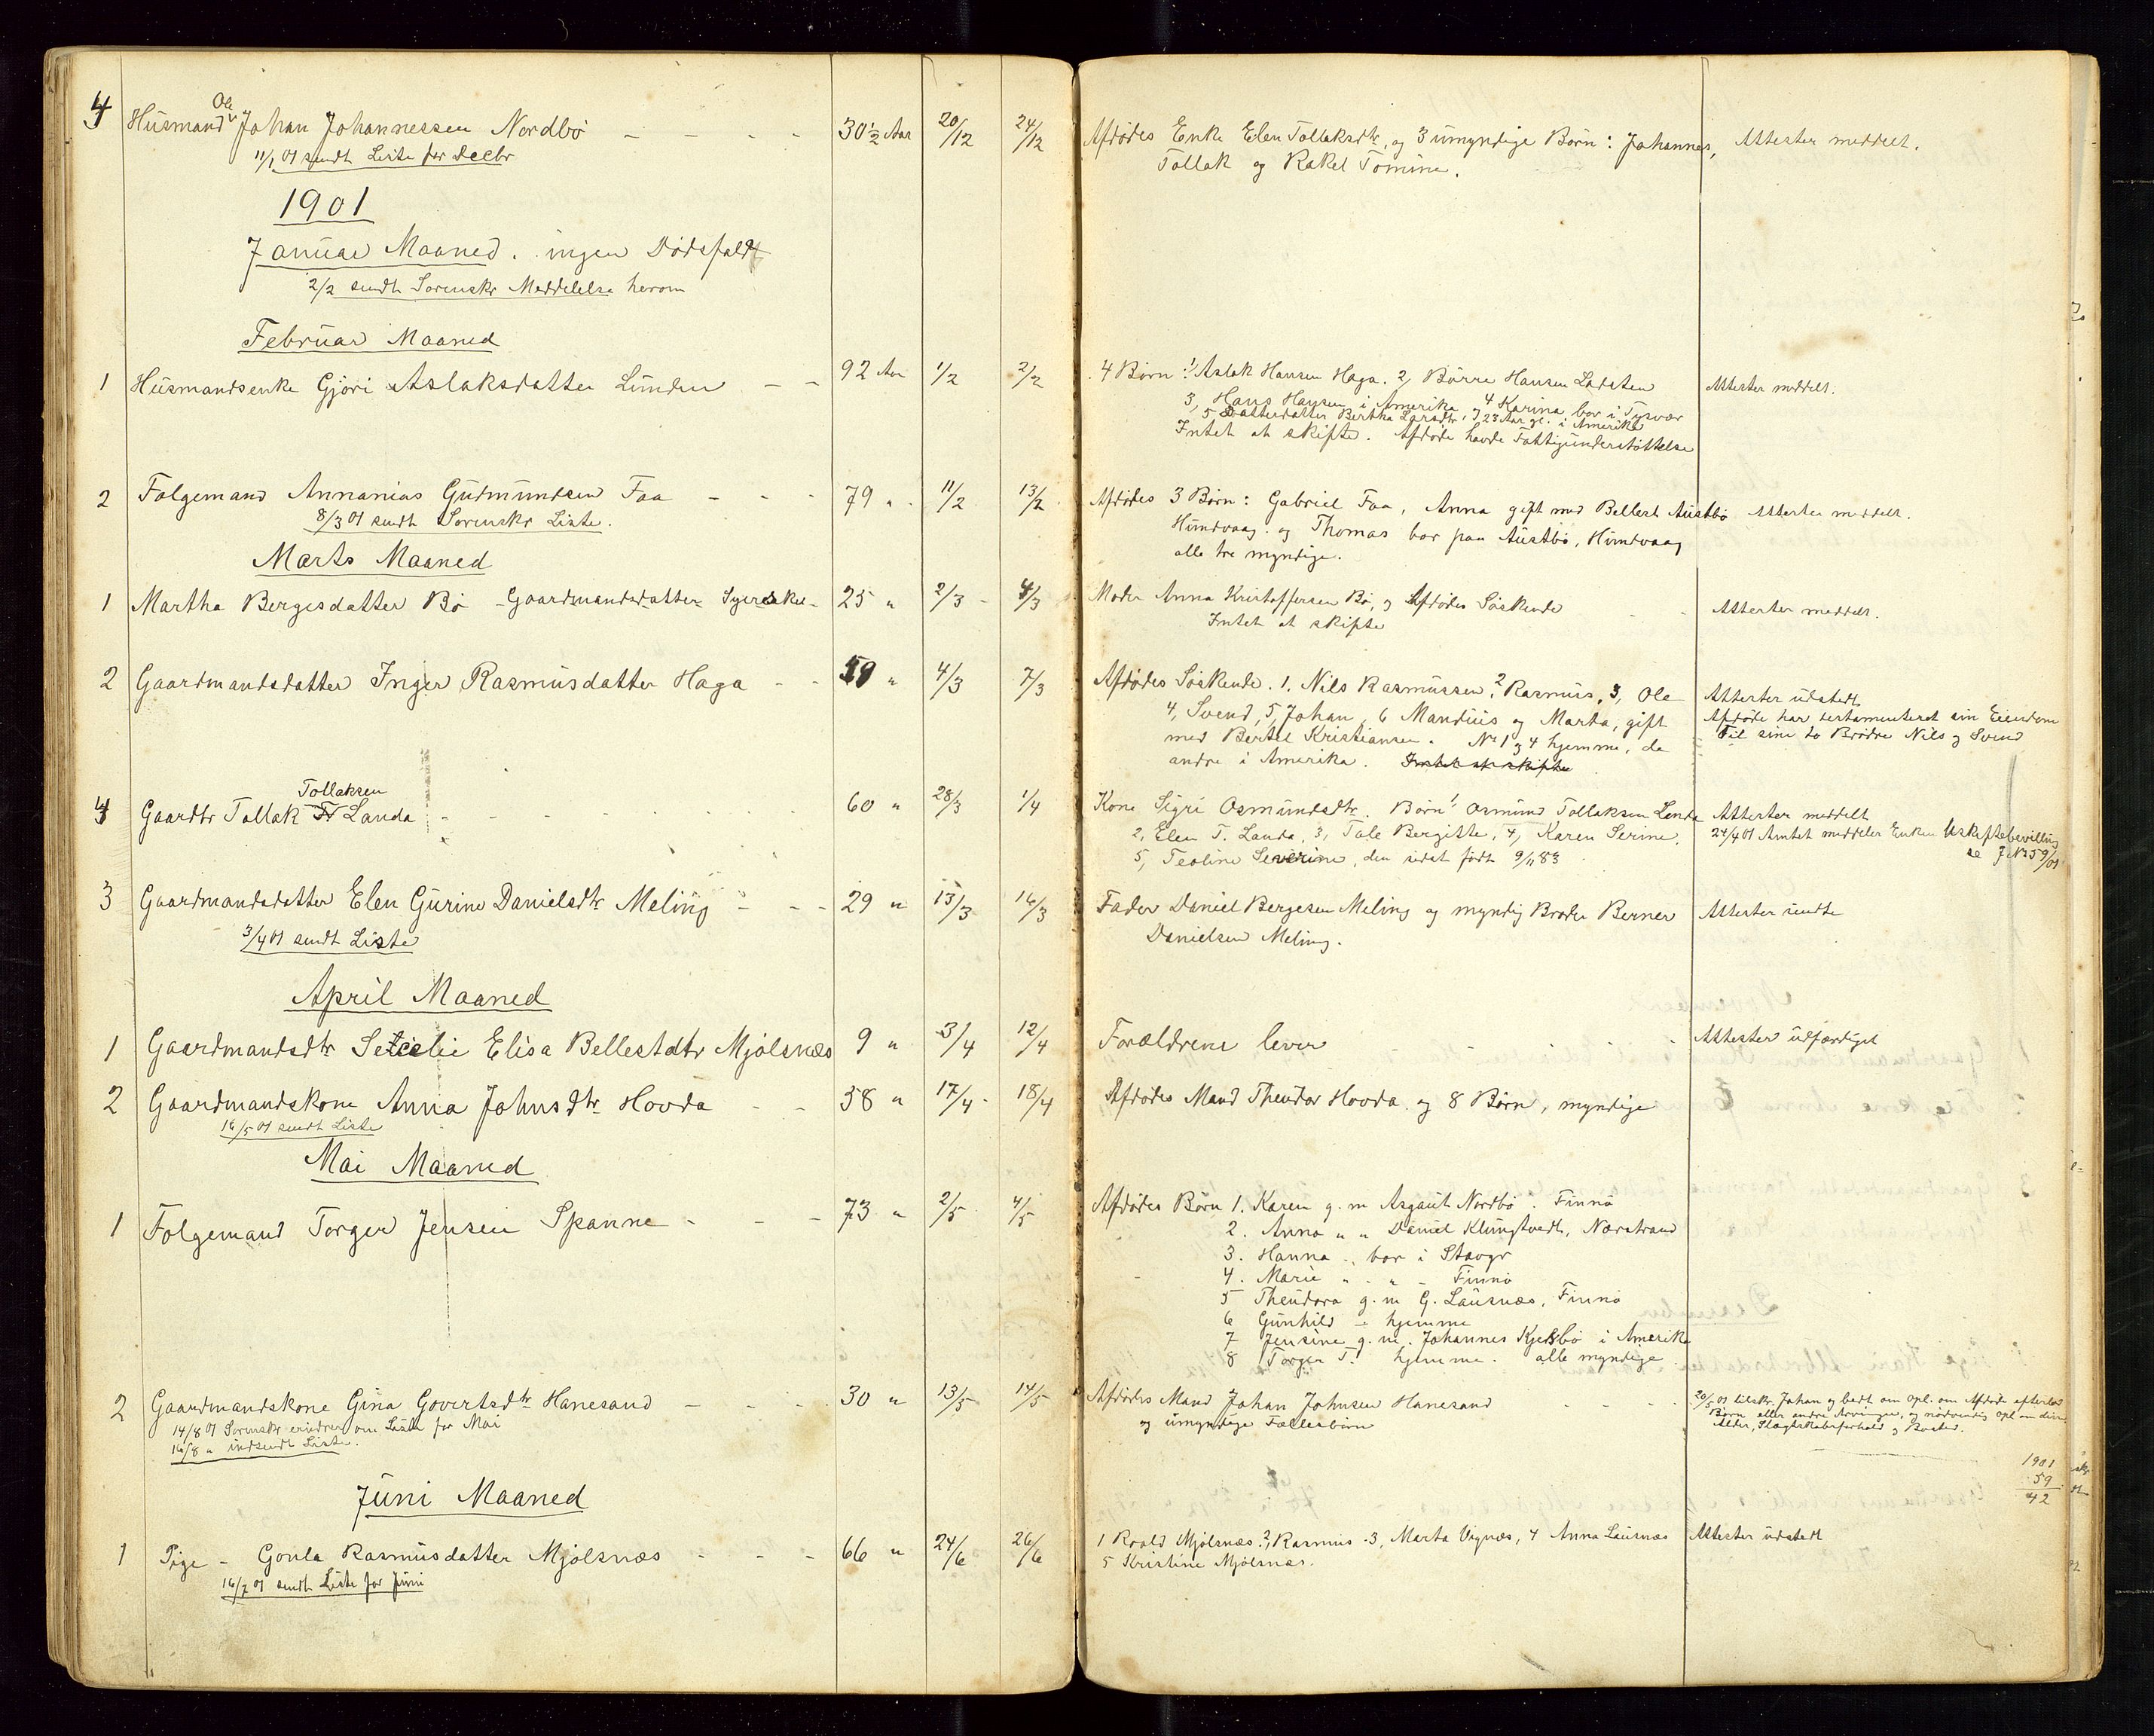 4 Husmand Ole Johan Johannessen Nordbö - - - - 30½ Aar 20/12 24/12 Afdödes Enke Elen Tollaksdtr, og 3 umyndige Börn: Johannes, Attester meddelt.
11/1 01 sendt Liste for Decbr Tollak og Rakel Tomine.
1901
Januar Maaned. ingen Dödsfald
2/2 sendt Sorenskr Meddelelse herom
Februar Maaned
1 Husmandsenke Gjöri Aslaksdatter Lunden - - 92 Aar 1/2 2/2 4 Börn: 1, Aslak Hansen Haga. 2, Börre Hansen Ladsten Attester meddelt.
3, Hans Hansen i Amerika og 4 Karina bor i Tysvær
5 Datterdatter Bertha Larsdtr, 23 Aar gl. i Amerika
Intet at skifte. Afdöde havde Fattigunderstöttelse
2 Folgemand Annanias Gudmundsen Faa - - - 79 " 11/2 13/2 Afdödes 3 Börn: Gabriel Faa, Anna gift med Bellest Austbö Attester meddelt.
8/3 01 sendt Sorenskr Liste. Hundvaag. og Thomas bor paa Austbö, Hundvaag
alle tre myndige.
Marts Maaned
1 Martha Bergesdatter Bö - Gaardmandsdatter - 25 " 2/3 - 4/3 Moder Anna Kristoffersen Bö, og Afdödes Söskende - - Attester meddelt.
Intet at skifte
2 Gaardmandsdatter Inger Rasmusdatter Haga - - 59 " 4/3 7/3 Afdödes Söskende. 1. Nils Rasmussen, 2 Rasmus, 3, Ole Attester udstedt
4, Svend, 5, Johan, 6 Mandius og Marta, gift Afdöde har testamenteret sin Eiendom
med Bertel Kristiansen. No 1 og 4 hjemme, de Til sine to Brödre Nils og Svend
andre i Amerika. Intet at skifte
4 Gaardbr Tollak Tollaksen Landa - - - - 60 " 28/3 1/4 Kone Sigri Osmundsdtr. Börn 1, Osmund Tollaksen Landa Attester meddelt
2, Elen T. Landa, 3, Tale Bergitte, 4, Karen Serine, 24/4 01 Amtet meddeler Enken Uskiftebevilling
5, Teoline Severine, den sidst födt 9/11 83 se J No 59/01
3 Gaardmandsdatter Elen Gurine Danielsdtr Meling - - - 29 " 13/3 16/3 Fader Daniel Bergesen Meling og myndig Broder Berner Attester sendte
3/4 01 sendt Liste Danielsen Meling.
April Maaned
1 Gaardmandsdtr Elisa Bellestdtr Mjölsnæs 9 " 3/4 12/4 Forældrene lever - - - - Attester udfærdiget
2 Gaardmandskone Anna Johnsdtr Hovda - - 38 " 17/4 - 18/4 Afdödes Mand Theodor Hovda og 8 Börn, myndige
16/5 01 sendt Liste
Mai Maaned
1 Folgemand Torger Jensen Spanne - - - 73 " 2/5 4/5 Afdödes Börn 1. Karen g. m Asgaut Nordbö. Finnö
2. Anna " " Daniel Klungtvedt, Nærstrand
3. Hanna -, bor i Stavgr
4. Marie " - " - Finnö
5 Theodora g. m G. Lausnæs, Finnö
6 Gunhild - hjemme
7 Jensine g. m. Johannes Kjelsbö i Amerika
8 Torger T. hjemme. alle myndige
2 Gaardmandskone Gina Govertsdtr Hanesand - - - 30 " 13/5 14/5 Afdödes Mand Johan Johnsen Hanesand - - - - 20/5 01 tilskr. Johan og bedt om Opl. om Afdöde efterlod
14/8 01 Sorenskr erindrer om Liste for Mai og umyndige Fællesbörn Börn eller andre Arvinger, og nödvendig opl om disses
16/8 " indsendt Liste. Alder, Slægtskabsforhold og Bosted.
1901
59
42
Juni Maaned
1 Pige - Gonla Rasmusdatter Mjölsnæs - - - 66 " 24/6 26/6 1 Roald Mjölsnæs. 2, Rasmus. 3, Marta Vignæs, 4 Anna Lausnæs Attester udstedt
16/7 01 sendt Liste for Juni 5 Kristine Mjölsnæs.